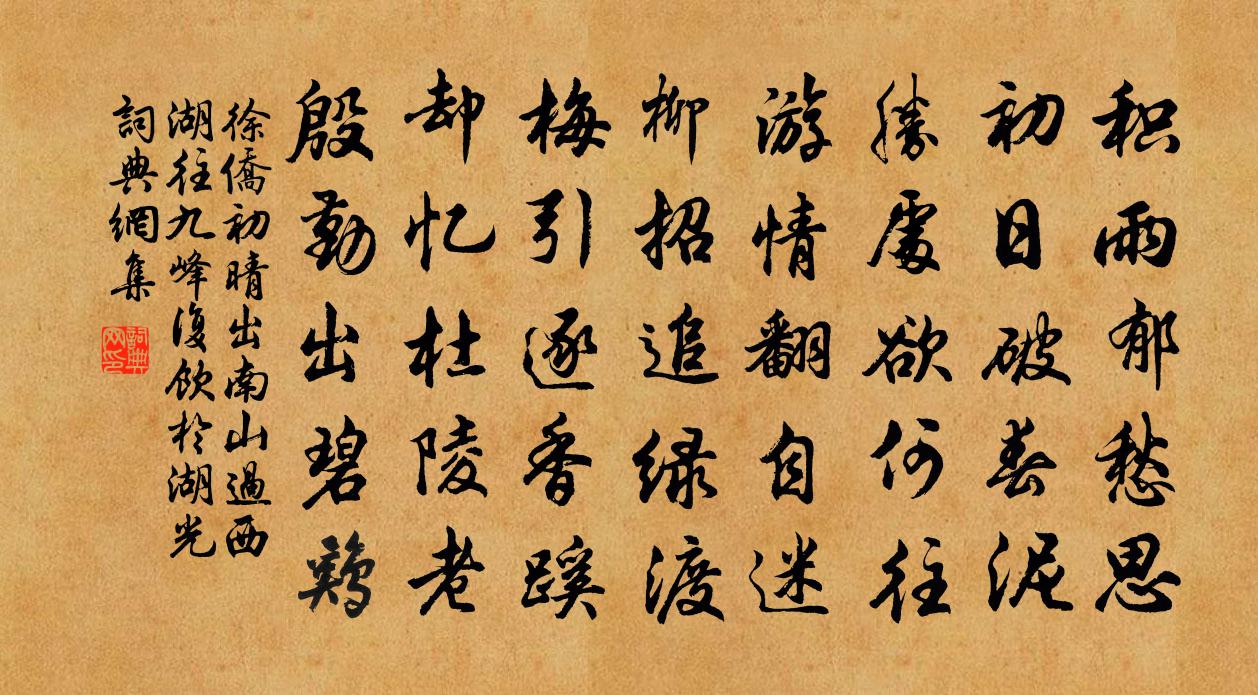 积雨郁愁思
初日破春泥
胜处欲何往
游情翻自迷
柳招追绿渡
梅引逐香蹊
却忆杜陵老
殷勤出碧鸡
徐侨初晴出南山过西
湖往九峰复饮于湖光
词典网集